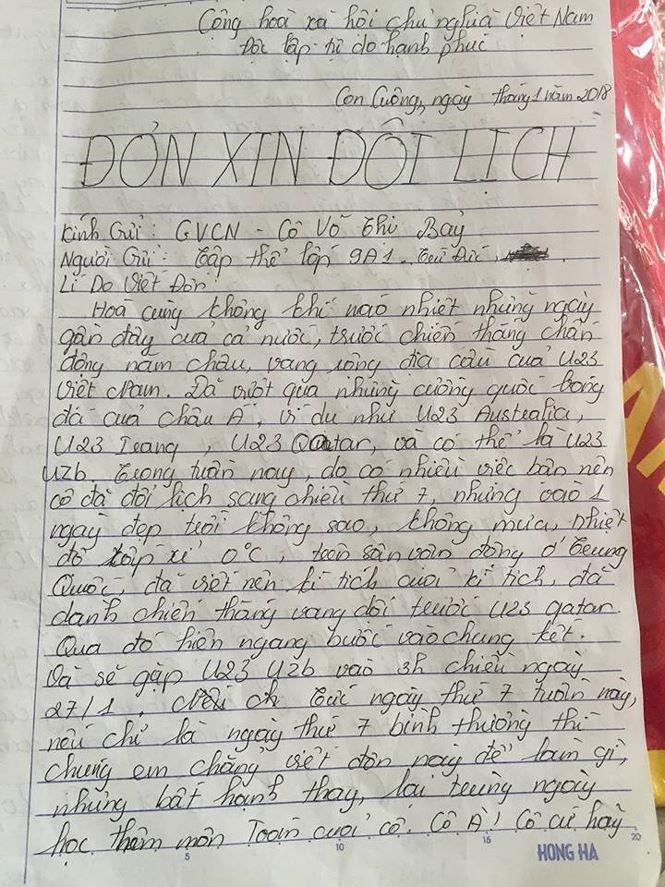 Cộng hoà xã hội chủ nghĩa Việt Nam
Độc lập tự do hạnh phúc
Con Cuông, ngày tháng 1 năm 2018
ĐƠN XIN ĐỔI LỊCH
Kính Gửi: GVCN - Cô Võ Thị Bảy
Người Gửi: Tập thể lớp 9A1. Trà Đức,
Lí Do Viết Đơn:
Hoà cùng không khí náo nhiệt những ngày
gần đây của cả nước, trước chiến thắng chấn
động năm châu, vang vọng địa cầu của U23
Việt Nam. Đã vượt qua những cường quốc bóng
đá của châu Á, ví dụ như U23 Australia,
U23 Irang, U23 Qatar, và có thể là U23
Uzb. Trong tuần này, do có nhiều việc bận nên
cô đã đổi lịch sang chiều thứ 7, nhưng vào 1
ngày đẹp trời không sao, không mưa, nhiệt
độ xấp xỉ 0°C, trên sân vận động ở Trung
Quốc, đã viết nên kì tích của kì tích, đã
dành chiến thắng vang dội trước U23 qatar.
Qua đó hiên ngang bước vào chung kết.
Và sẽ gặp U23 Uzb vào 3h chiều ngày
27/1. Tức ngày thứ 7 tuần này,
nếu chỉ là ngày thứ 7 bình thường thì
chúng em chẳng viết đơn này để làm gì,
nhưng bất hạnh thay, lại trùng ngày
học thêm môn Toán của cô. Cô À! Cô cứ hay
5 10 15 20
HONG HA